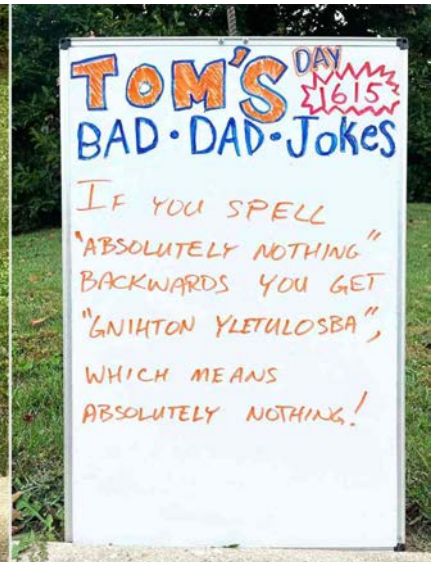 TOM'S DAY
1615
BAD•DAD•JOKES
IF YOU SPELL
"ABSOLUTELY NOTHING"
BACKWARDS YOU GET
"GNIHTON YLETULOSBA",
WHICH MEANS
ABSOLUTELY NOTHING!